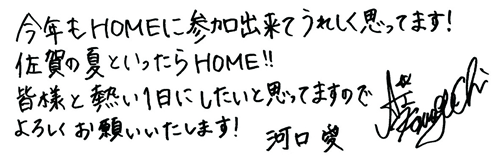 今年もHOMEに参加出来てうれしく思ってます!
佐賀の夏といったらHOME!!
皆様と熱い1日にしたいと思ってますので
よろしくお願いいたします!
河口 愛